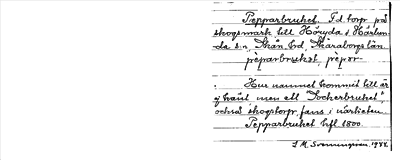 Pepparbruket. F.d. torp på
skogsmark till Höryda i Härlun-
da s:n, Skån. hd, Skaraborgs län.
peparbrukat, pepor-
Hur namnet kommit till är
ej känt men ett "Sockerbruket",
också skogstorp, fans i närheten.
Pepparbruket är 1800.
S M Svenungsson. 1944.